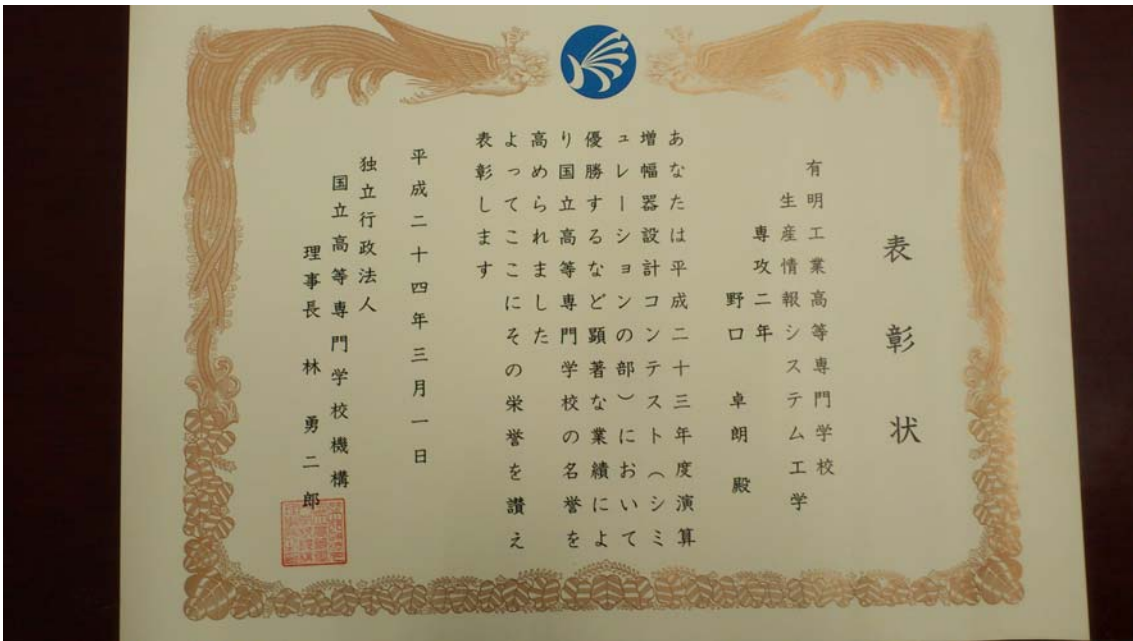 表彰状
有明工業高等専門学校
生産情報システム工学
専攻二年
野口 卓朗 殿
あなたは平成二十三年度演算
増幅器設計コンテスト（シミ
ュレーションの部）において
優勝するなど顕著な業績によ
り国立高等専門学校の名誉を
高められました
よってここにその栄誉を讃え
表彰します
平成二十四年三月一日
独立行政法人
国立高等専門学校機構
理事長 林 勇二郎